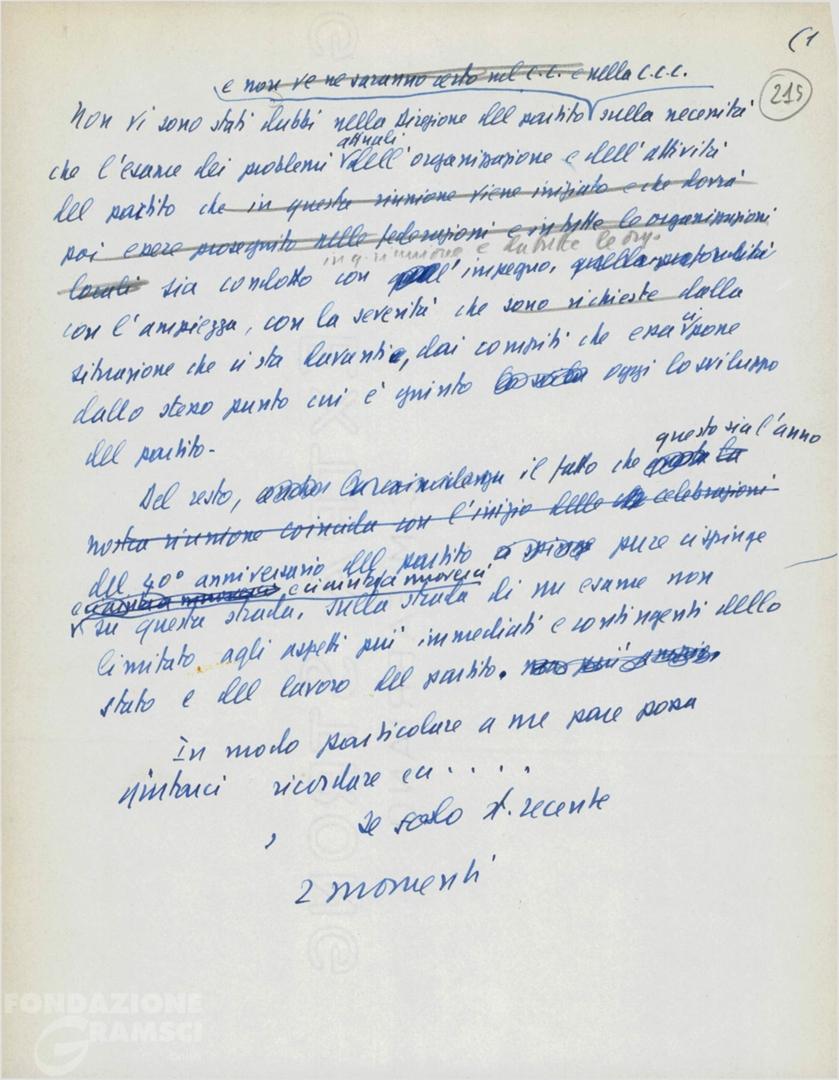 (1
215
e non ve ne saranno certo nel C.C. e nella C.C.C.
Non vi sono stati dubbi nella Direzione del partito sulla necessità
attuali
che l'esame dei problemi dell'organizzazione e dell'attività
del partito che in questa riunione viene iniziato e che dovrà
poi essere proseguito nelle federazioni e in tutte le organizzazioni
in q. riunione e da tutte le org.
locali sia condotto con l'impegno, quella profondità
con l'ampiezza, con la severità che sono richieste dalla
situazione che ci sta davanti, dai compiti che essa ci pone
dallo stesso punto cui è giunto oggi lo sviluppo
del partito.
questo sia l'anno
Del resto, la circostanza il fatto che la
nostra riunione coincida con l'inizio delle celebrazioni
del 40° anniversario del partito pure ci spinge
e ci inizia a muoverci
su questa strada, sulla strada di un esame non
limitato agli aspetti più immediati e contingenti dello
stato e del lavoro del partito.
In modo particolare a me pare possa
aiutarci ricordare
se solo recente
2 momenti
FONDAZIONE
GRAMSCI